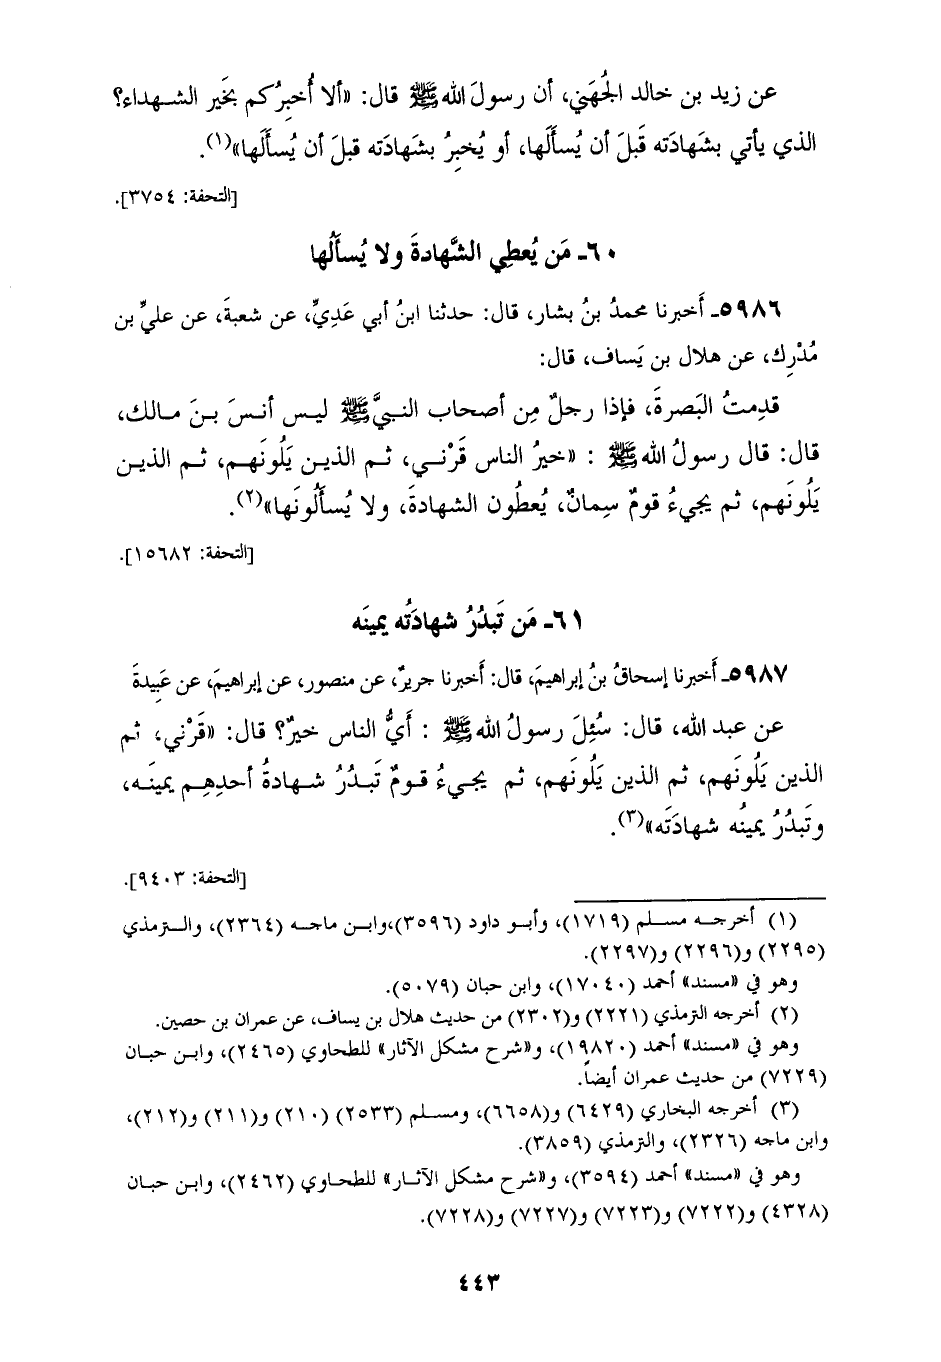 عن زيد بن خالد الجُهَني، أن رسولَ الله ﷺ قال: «ألا أُخبِرُكم بخَير الشهداء؟
الذي يأتي بشَهادَته قَبلَ أن يُسألَها، أو يُخبِرُ بشَهادَته قبلَ أن يُسأَلَها»(١).
[التحفة: ٣٧٥٤].
٦٠ـ مَن يُعطِي الشَّهادةَ ولا يُسأَلُها
٥٩٨٦ـ أَخبرنا محمدُ بنُ بشار، قال: حدثنا ابنُ أبي عَدِيٍّ، عن شعبةَ، عن عليِّ بن
مُدْرِك، عن هلال بن يَساف، قال:
قدِمتُ البَصرةَ، فإذا رجلٌ مِن أصحاب النبيِّ ﷺ ليس أنسَ بنَ مالك،
قال: قال رسولُ الله ﷺ : «خيرُ الناس قَرْني، ثم الذين يَلُونَهم، ثم الذين
يَلُونَهم، ثم يجيءُ قومٌ سِمانٌ، يُعطُون الشهادةَ، ولا يُسأَلُونَها»(٢).
[التحفة: ١٥٦٨٢].
٦١ـ مَن تَبدُرُ شهادَتُه يمينَه
٥٩٨٧ـ أَخبرنا إسحاقُ بنُ إبراهيمَ، قال: أَخبرنا جريرٌ، عن منصور، عن إبراهيمَ، عن عَبِيدةَ
عن عبد الله، قال: سُئِلَ رسولُ الله ﷺ : أَيُّ الناس خيرٌ؟ قال: «قَرْني، ثم
الذين يَلُونَهم، ثم الذين يَلُونَهم، ثم يجيءُ قومٌ تَبدُرُ شهادةُ أحدِهِم يمينَه،
وتَبدُرُ يمينُه شهادَتَه»(٣).
[التحفة: ٩٤٠٣].
(١) أخرجه مسلم (١٧١٩)، وأبو داود (٣٥٩٦)،وابن ماجه (٢٣٦٤)، والترمذي
(٢٢٩٥) و(٢٢٩٦) و(٢٢٩٧).
وهو في «مسند» أحمد (١٧٠٤٠)، وابن حبان (٥٠٧٩).
(٢) أخرجه الترمذي (٢٢٢١) و(٢٣٠٢) من حديث هلال بن يساف، عن عمران بن حصين.
وهو في «مسند» أحمد (١٩٨٢٠)، و«شرح مشكل الآثار» للطحاوي (٢٤٦٥)، وابن حبان
(٧٢٢٩) من حديث عمران أيضاً.
(٣) أخرجه البخاري (٦٤٢٩) و(٦٦٥٨)، ومسلم (٢٥٣٣) (٢١٠) و(٢١١) و(٢١٢)،
وابن ماجه (٢٣٢٦)، والترمذي (٣٨٥٩).
وهو في «مسند» أحمد (٣٥٩٤)، و«شرح مشكل الآثار» للطحاوي (٢٤٦٢)، وابن حبان
(٤٣٢٨) و(٧٢٢٢) و(٧٢٢٣) و(٧٢٢٧) و(٧٢٢٨).
٤٤٣